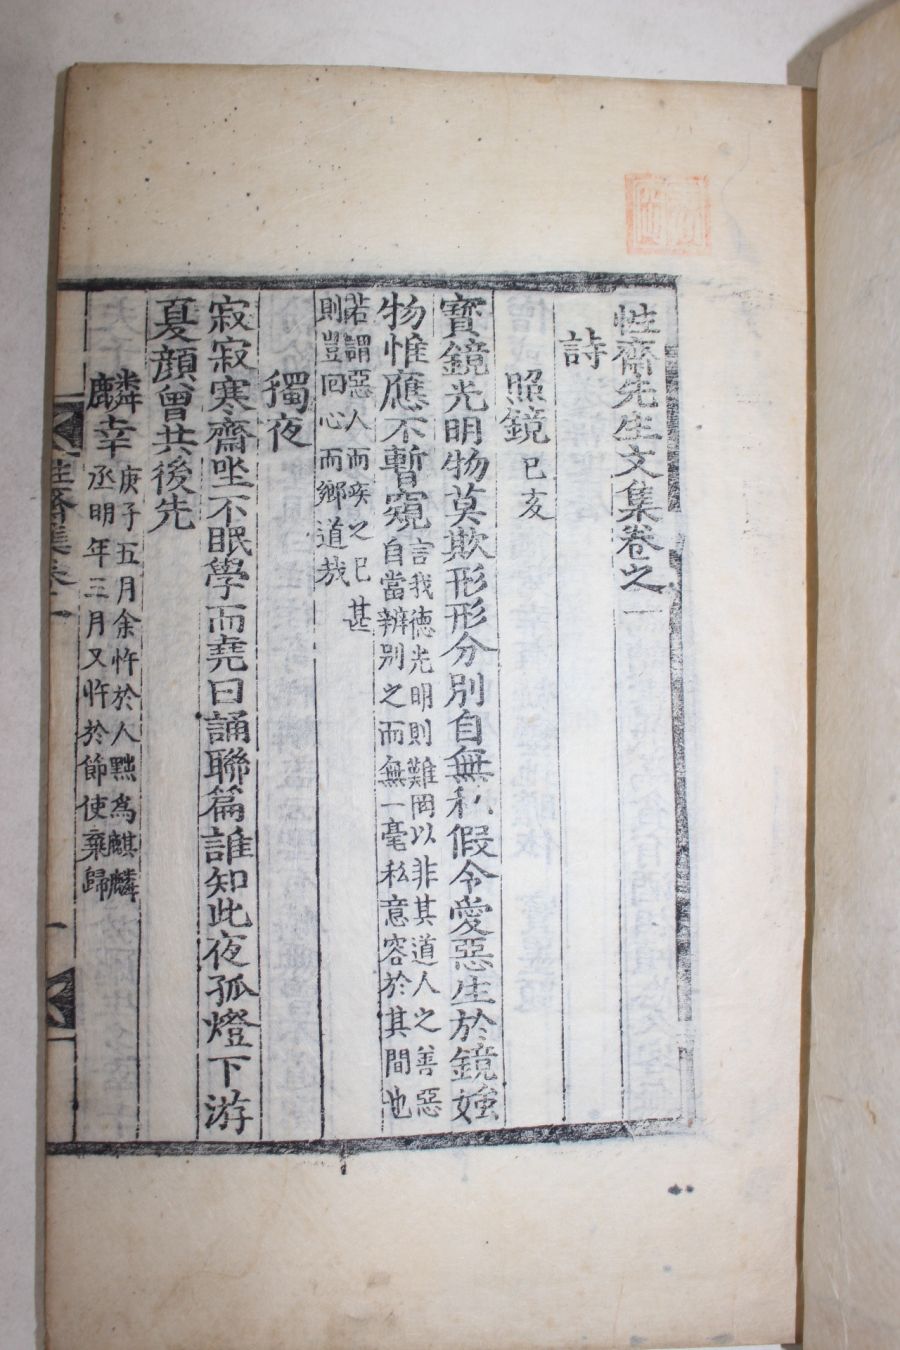 性齋先生文集卷之一
詩
照鏡 己亥
寳鏡光明物莫欺形形分別自無私假令愛惡生於鏡媸
物惟應不暫窺 言我德光明則難罔以非其道人之善惡
自當辨别之而無一毫私意容於其間也
若謂惡人而疾之已甚
則豈回心而鄉道哉
獨夜
寂寂寒齋坐不眠學而堯曰誦聯篇誰知此夜孤燈下游
夏顔曾共後先
麟幸 庚子五月余忤於人黜爲麒麟
丞明年三月又忤於節使棄歸
性齋集卷一
一